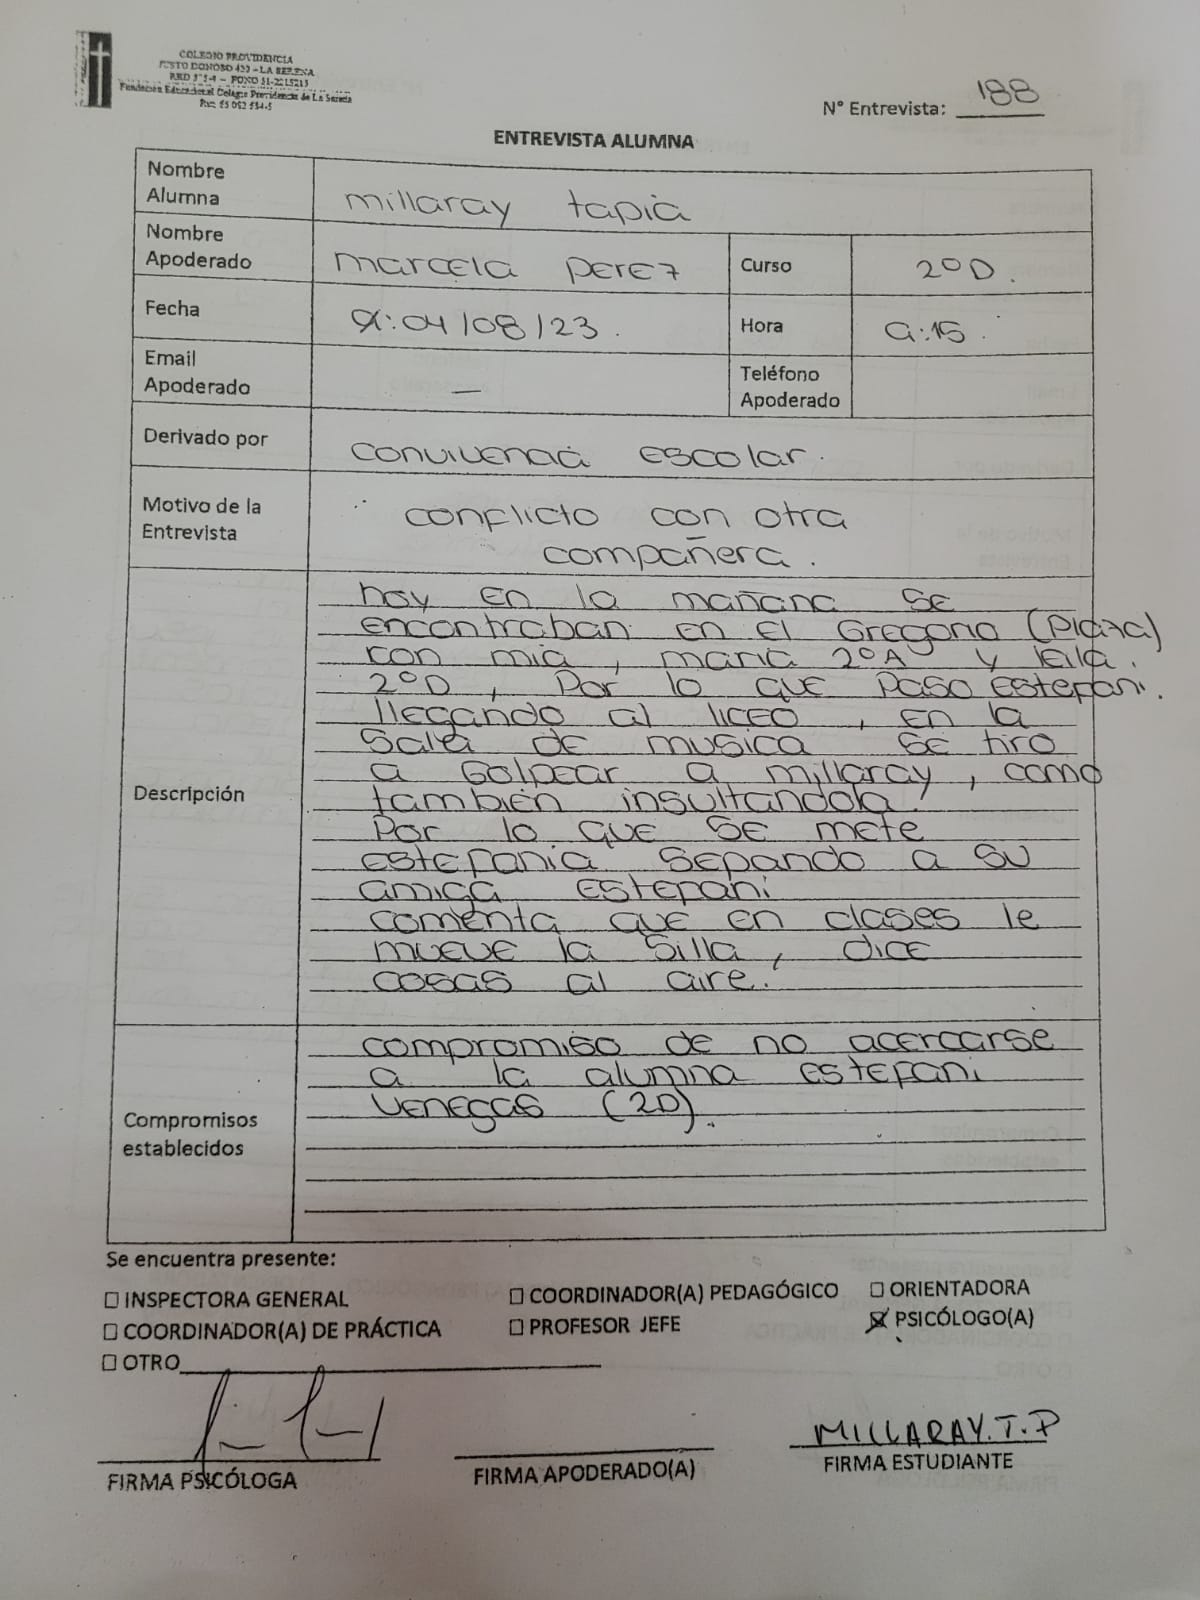 COLEGIO PROVIDENCIA
JUSTO DONOSO 420 - LA SERENA
Fundación Educacional Colegio Providencia de La Serena
N° Entrevista: 188
ENTREVISTA ALUMNA
Nombre Alumna millaray tapia
Nombre Apoderado marcela perez Curso 2°D.
Fecha 04/08/23. Hora 9:15.
Email Apoderado — Teléfono Apoderado
Derivado por convivencia escolar.
Motivo de la Entrevista conflicto con otra
compañera.
Descripción
hoy en la mañana se
encontraban en el Gregorio (Plaza)
con mia, maria 2°A y leila.
2°D, Por lo que paso estepani.
llegando al liceo, en la
sala de musica se tiro
a golpear a millaray, como
también insultandola.
Por lo que se mete
estefania sepando a su
amiga estepani
comenta que en clases le
mueve la silla, dice
cosas al aire.
Compromisos establecidos
compromiso de no acercarse
a la alumna estefani
venegas (2D).
Se encuentra presente:
INSPECTORA GENERAL COORDINADOR(A) PEDAGÓGICO ORIENTADORA
COORDINADOR(A) DE PRÁCTICA PROFESOR JEFE PSICÓLOGO(A)
OTRO
MILLARAY.T.P
FIRMA PSICÓLOGA FIRMA APODERADO(A) FIRMA ESTUDIANTE